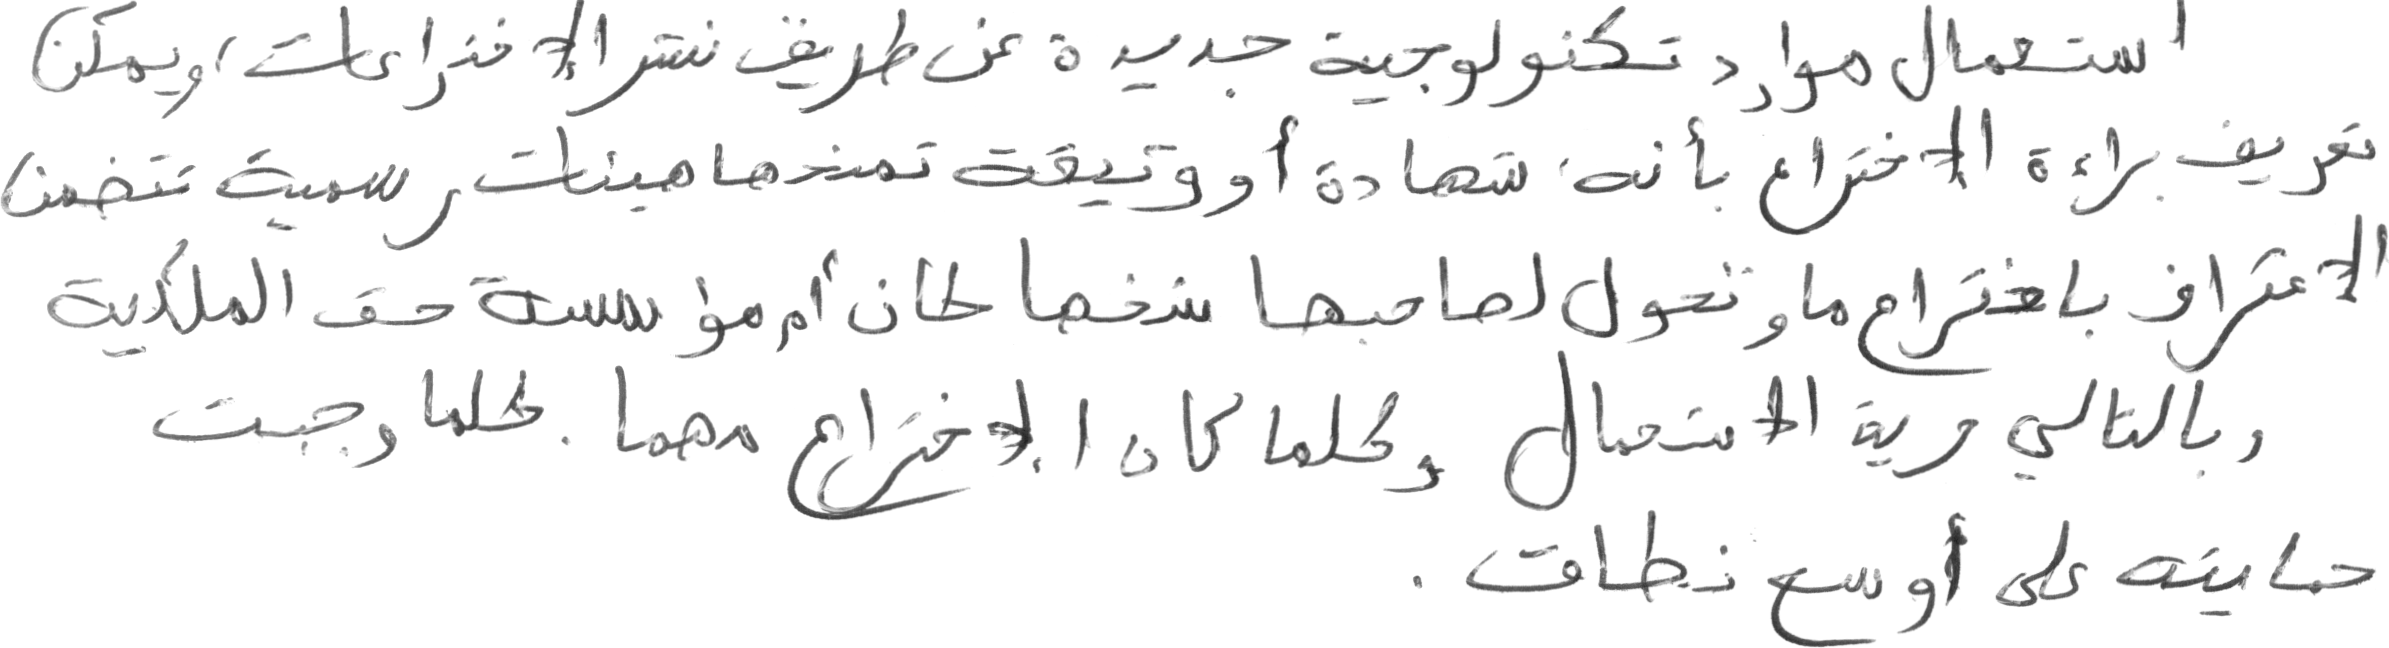 استعمال موارد تكنولوجية جديدة عن طريق نشر الإختراعات، ويمكن
تعريف براءة الإختراع بأنه، شهادة أو وثيقة تمنحها هيئات رسمية تتضمن
الاعتراف باختراع ما وتخول لصاحبها شخصا كان أم مؤسسة حق الملكية
وبالتالي حرية الاستعمال وكلما كان الإختراع مهما. كلما وجبت
حمايته على أوسع نطاق.